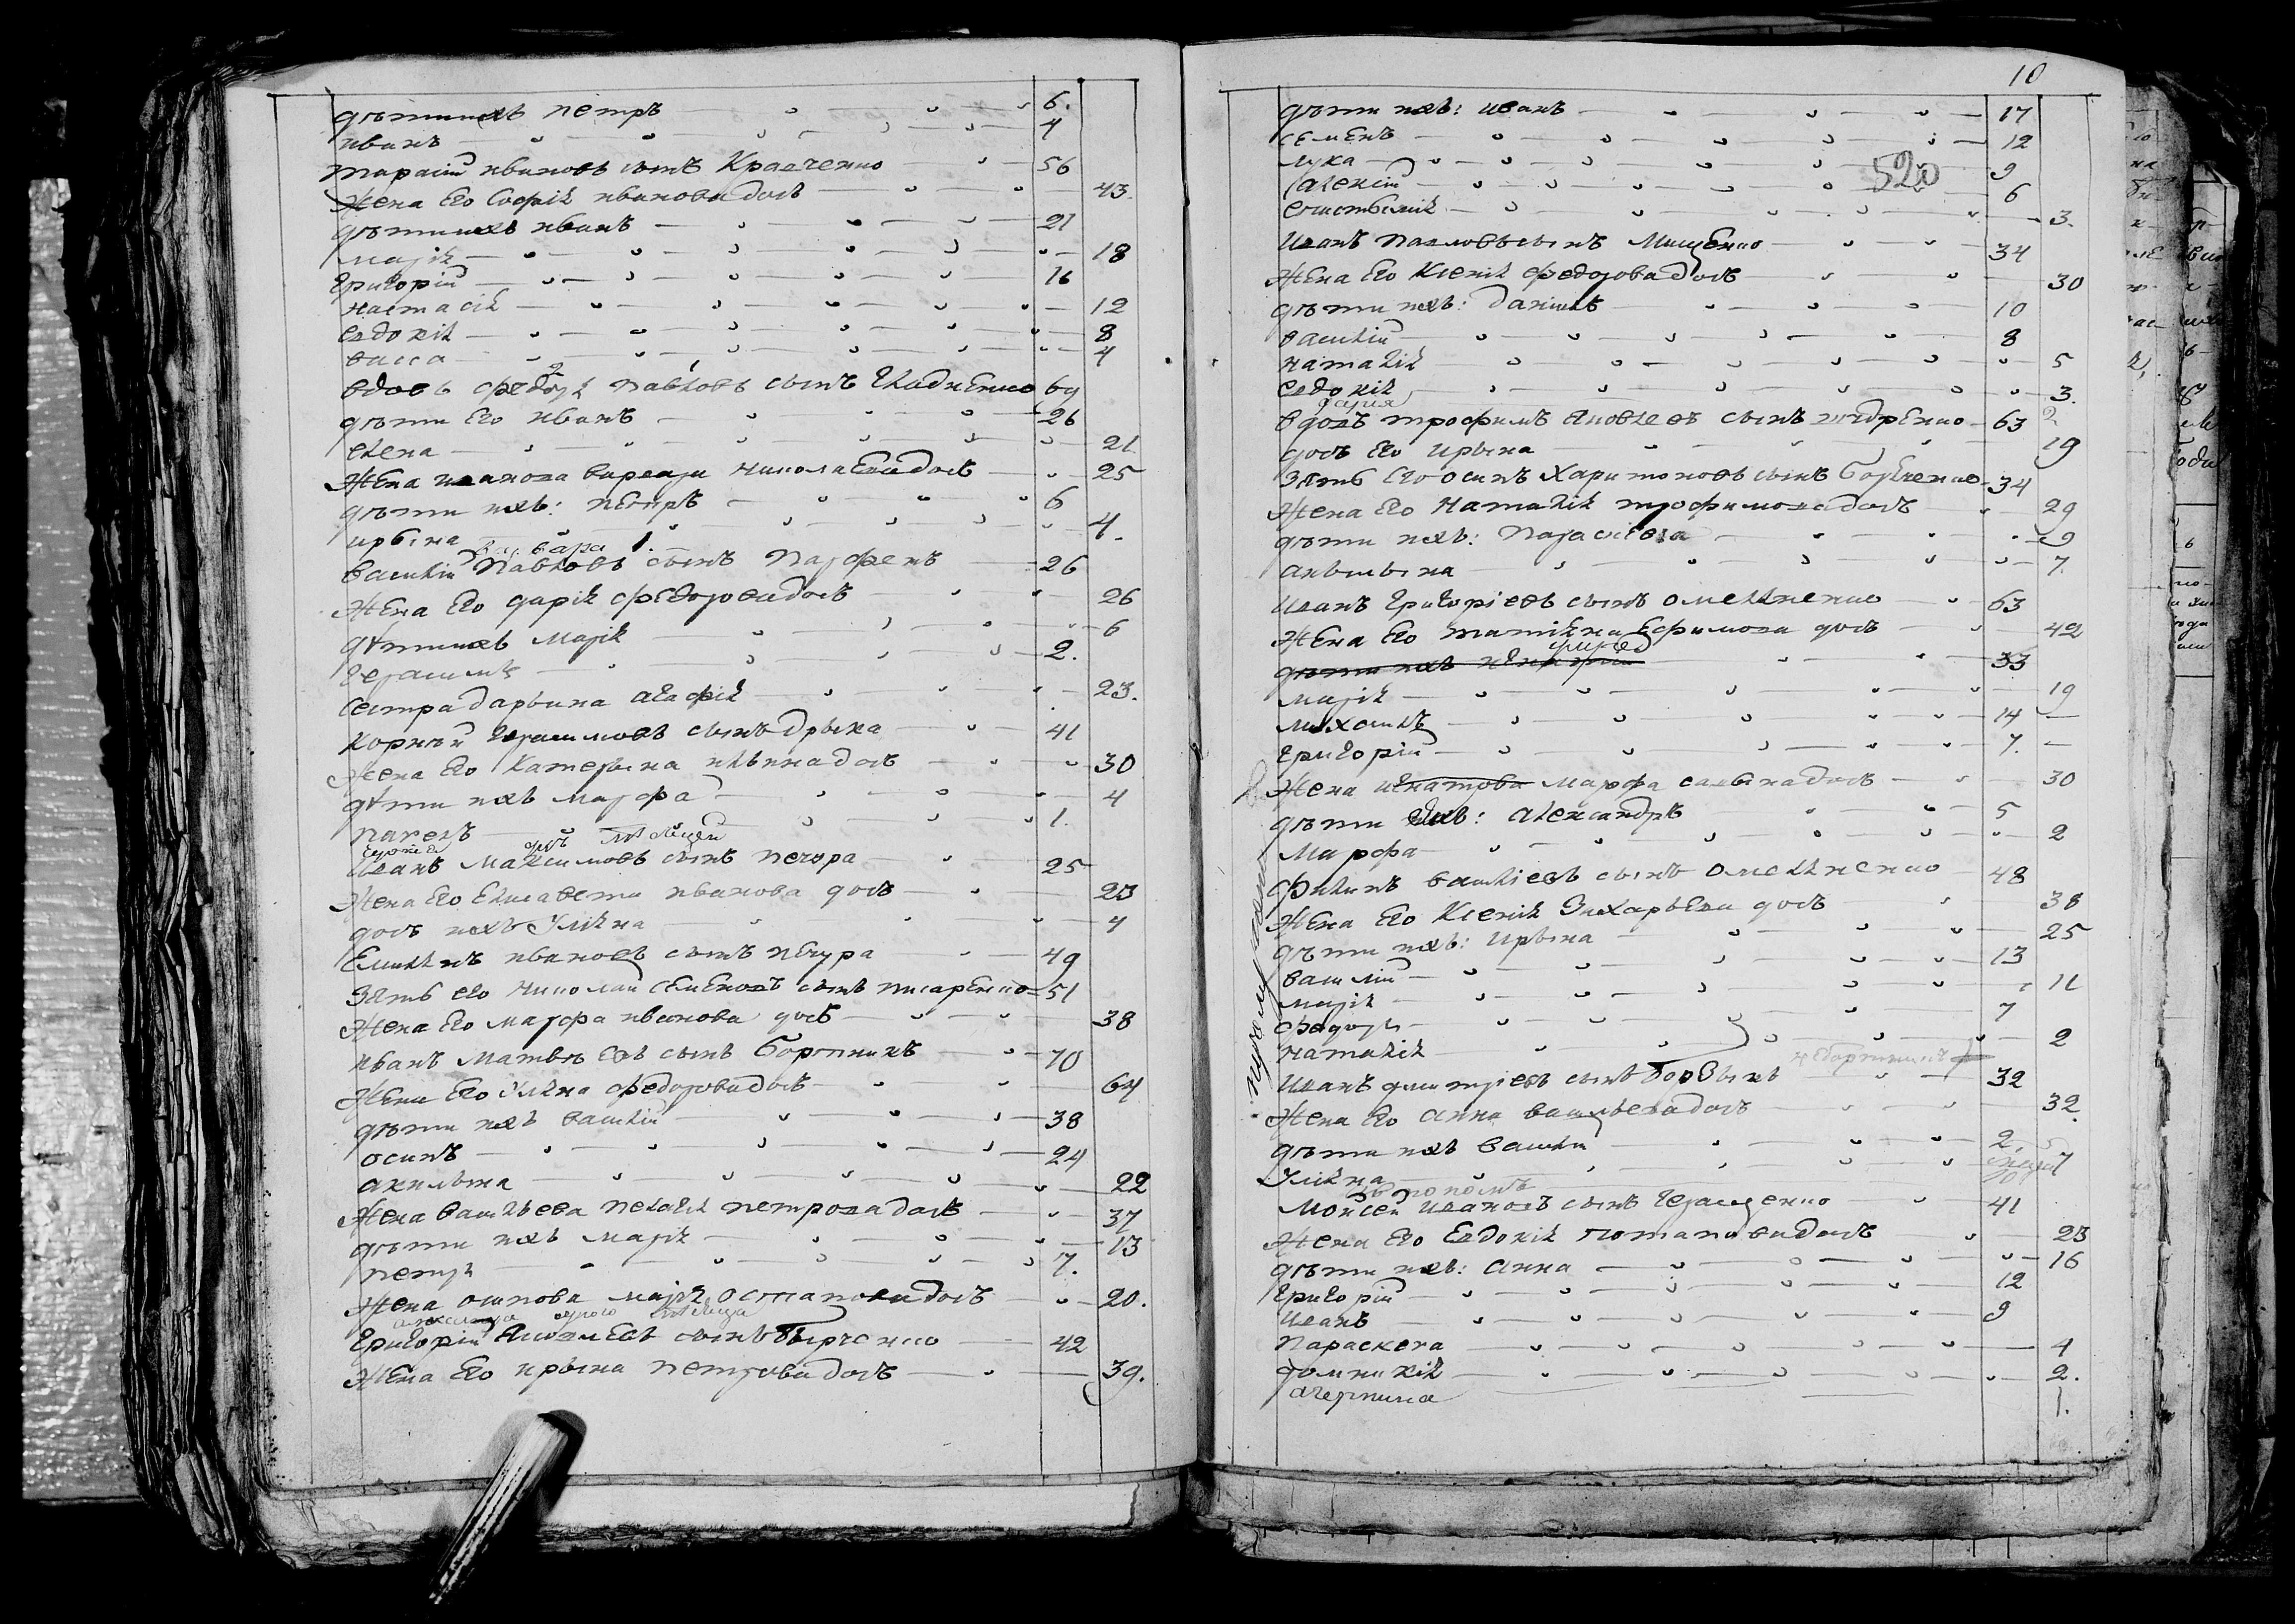 дѣти ихъ петръ 6.
иванъ 4
тарасій ивановъ сынъ Кравченко 56
Жена Его Софія иванова дочь 43.
дѣти ихъ иванъ 21
марія 18
Григорій 16
настасія 12
Евдокія 8
васса 4
вдовъ федоръ павловъ сынъ 69
дѣти Его иванъ 26
елена 21
Жена иванова варвара николаева дочь 25
дѣти ихъ: петръ 6
ирына 4.
варвара 1.
василій павловъ сынъ парфенъ 26
Жена Его дарія федорова дочь 26
дѣти ихъ марія 6
герасимъ 2.
сестра дарьина агафія 23.
корнѣй герасимовъ сынъ дрыка 41
жена Его катерына ильина дочь 30
дѣти ихъ марфа 4
павелъ 1.
иванъ Максимовъ сынъ печора 25
Жена Его Елисавета иванова дочь 23
дочь ихъ Уляна 4
Емилянъ ивановъ сынъ печура 49
Зять его николай семеновъ сынъ писаренко 51
Жена Его марфа иванова дочь 38
иванъ матвѣевъ сынъ бортникъ 70
Жена Его Уляна федорова дочь 64
дѣти ихъ василій 38
осипъ 24
акилына 22
Жена васильева пелагія петрова дочь 37
дѣти ихъ марія 13
петръ 7.
Жена осипова марія остапова дочь 20.
Григорій сынъ 42
Жена Его ирына петрова дочь 39.
10
дѣти ихъ: иванъ 17
семенъ 12
лука 9
520
алексій 6
3.
иванъ павловъ сынъ Мищенко 34
Жена Его Ксенія федорова дочь 30
дѣти ихъ: данилъ 10
василій 8
наталія 5
Евдокія 3.
дарія 2
вдовъ трофимъ яковлевъ сынъ 63
дочь Его ирына 19
Зять Его осипъ харитоновъ сынъ 34
Жена Его наталія трофимова дочь 29
дѣти ихъ: параскева 9
7.
иванъ григоріевъ сынъ омеляненко 63
Жена Его татіяна Ефимова дочь 42
дѣти ихъ 33
марія 19
михаилъ 14
григорій 7.
Жена игнатова марфа савына дочь 30
дѣти ихъ: александръ 5
Марфа 2
филипъ василіевъ сынъ омеляненко 48
Жена Его Ксенія Захарьева дочь 38
дѣти ихъ: ирына 25
василій 13
марія 11
федоръ 7
наталія 2
иванъ дмитріевъ сынъ 32
Жена Его анна васильева дочь 32.
дѣти ихъ василій 2.
Уляна 7
Мойсей ивановъ сынъ геращенко 41
Жена Его Евдокія потапова дочь 23
дѣти ихъ: анна 16
григорій 12
иванъ 9
параскева 4
домникія 2.
1.